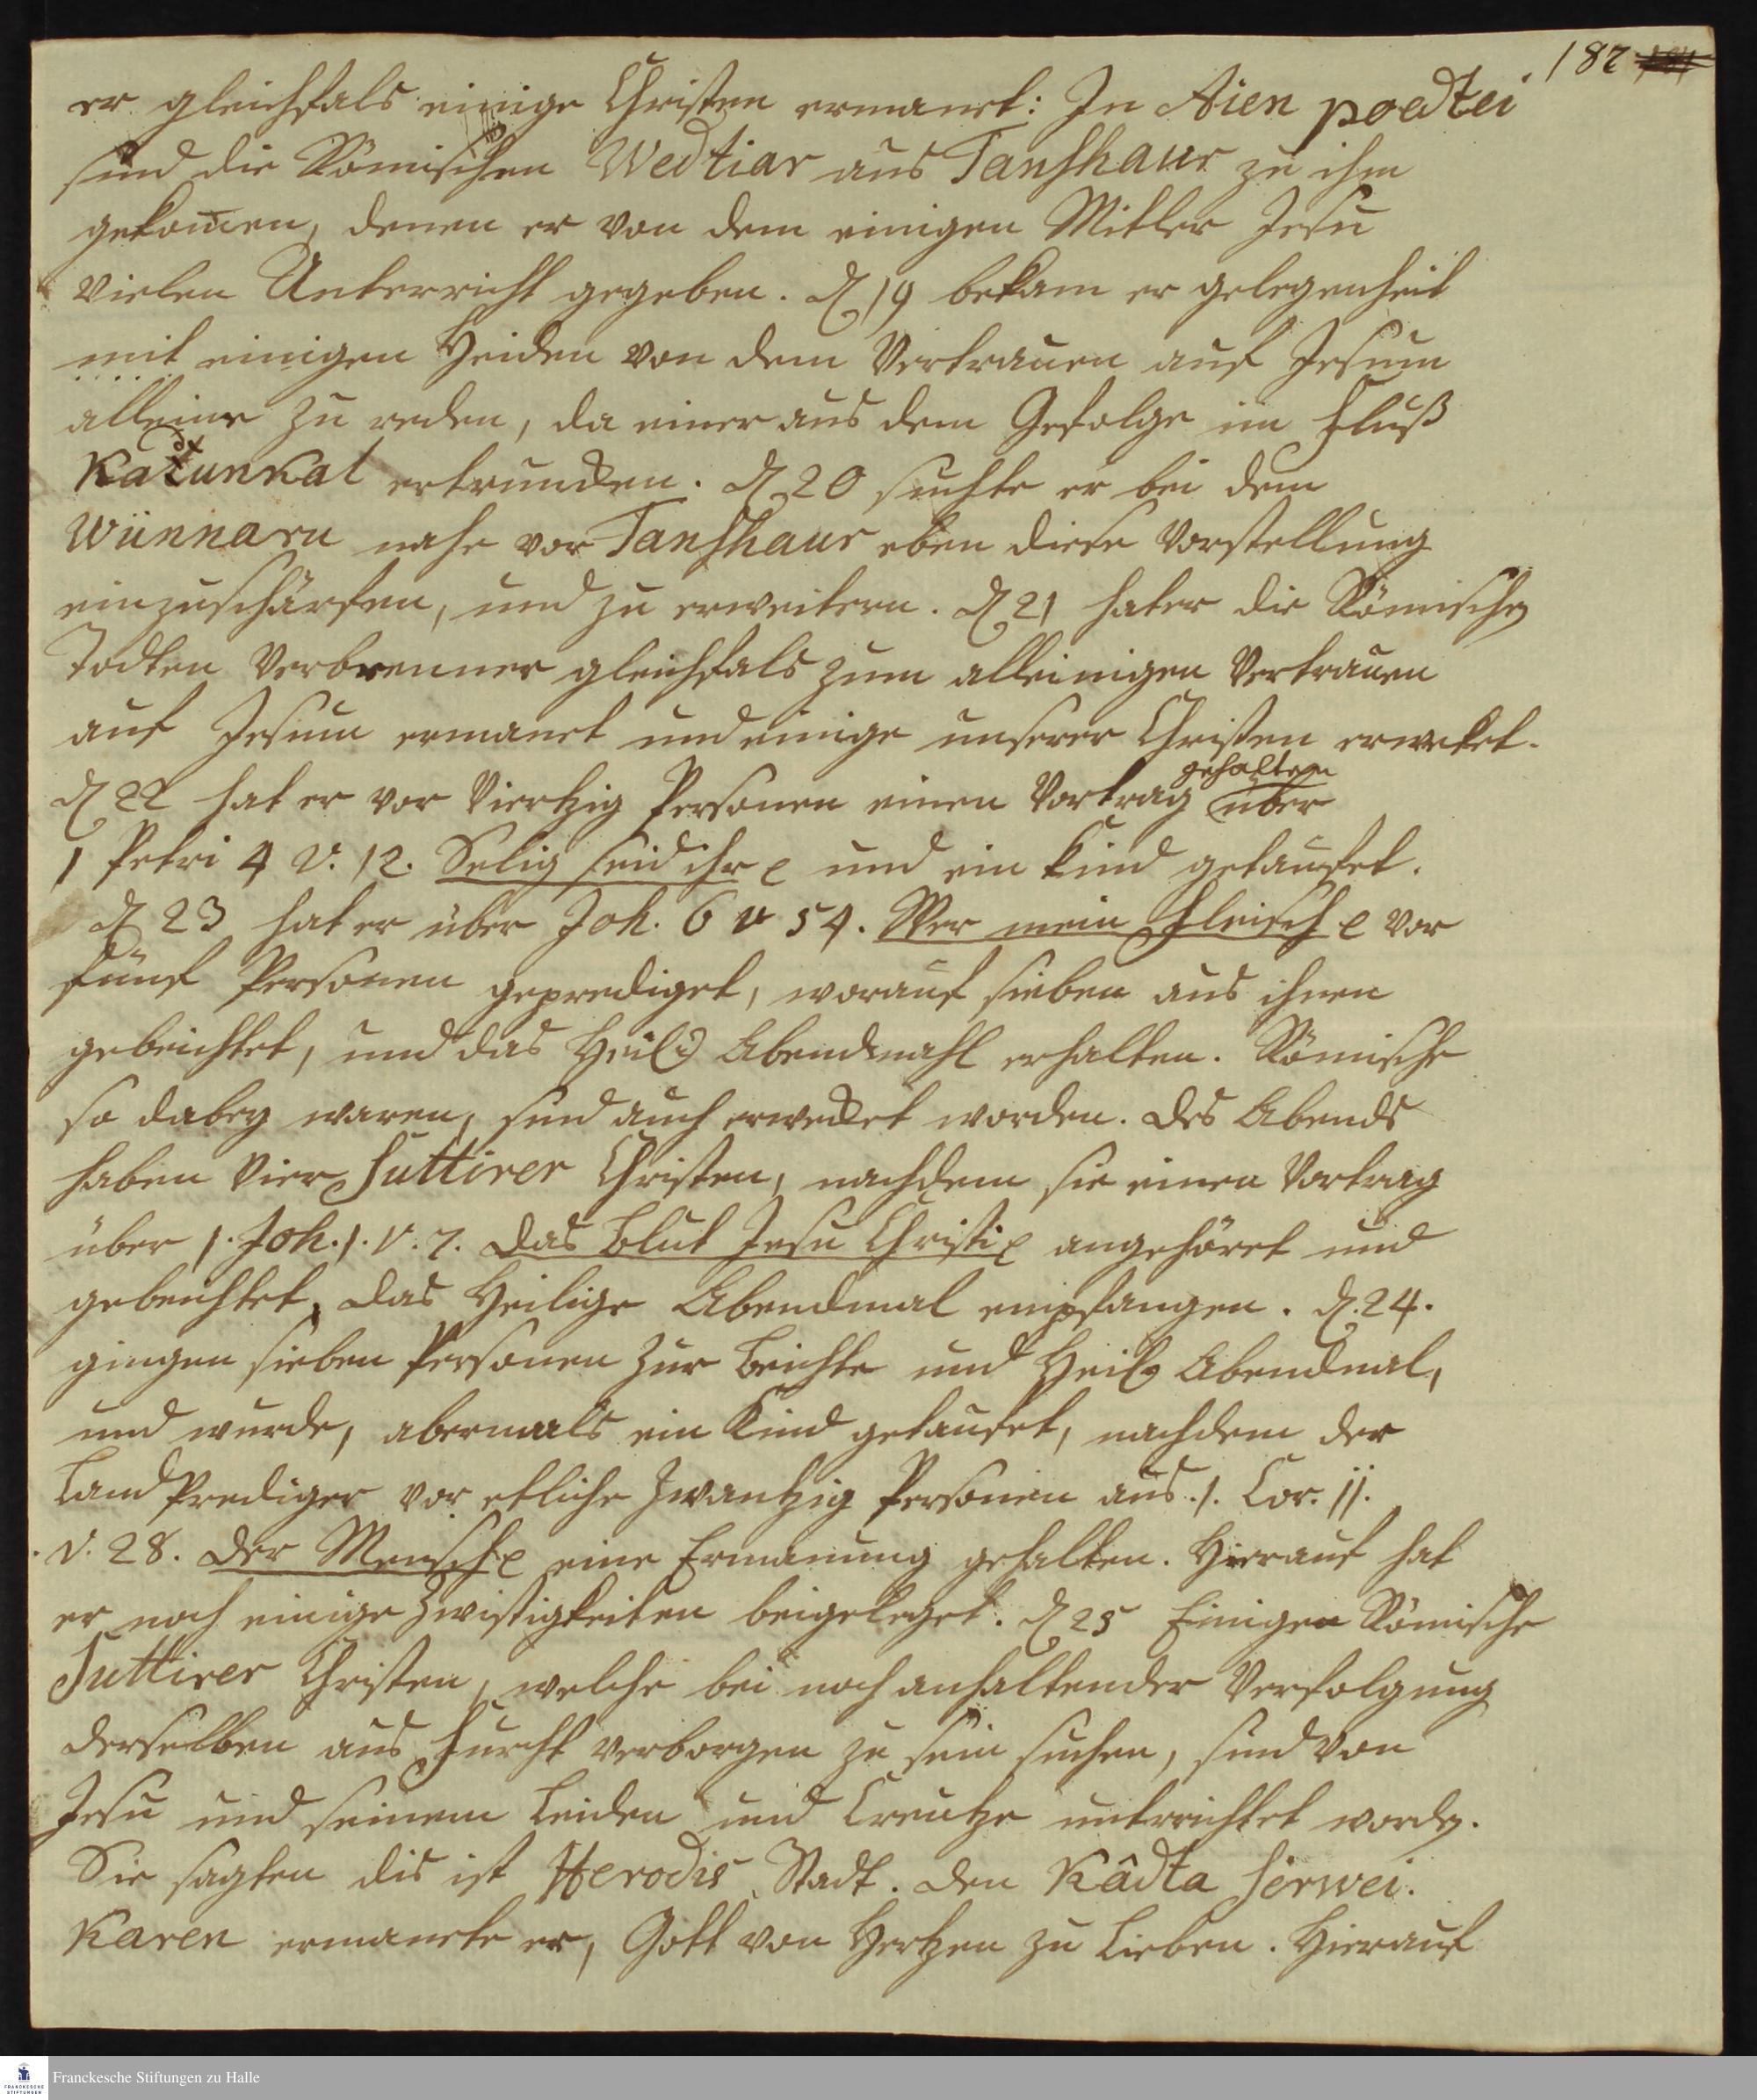 182
er gleichfals einige Christen ermanet: In Aien poedtei
sind die Römischen Wedtiar aus Tanshaur zu ihm
gekomen, denen er von dem einigen Mitler Jesu
vielen Unterricht gegeben. d 19 bekam er gelegenheit
mit einigen Heiden von dem Vertrauen auf Jesum
alleine zu reden, da einer aus dem Gefolge im Fluß
ertruncken. d 20 suchte er bei dem
Wünnaru nahe vor Tanshaur eben diese Vorstellung
einzuschärfen, und zu erweitern. d 21 hat er die Römischen
Todten Verbrenner gleichfals zum alleinigen Vertrauen
auf Jesum ermanet und einige unserer Christen erweket.
d 22 hat er vor Viertzig Personen einen Vortrag gehalten über
1 Petri 4 v. 12. Selig seid ihr e und ein Kind getaufet.
d 23 hat er über Joh. 6 v 54. Wer mein Fleisch e vor
fünf Personen geprediget, worauf sieben aus ihnen
gebeichtet, und das Heil. Abendmahl erhalten. Römische
so dabey waren, sind auch erwecket worden. Des Abends
haben Vier Suttirer Christen, nachdem sie einen Vortrag
über 1. Joh. 1. v. 7. Das Blut Jesu Christi e angehöret und
gebeichtet, das Heilige Abendmal empfangen. d. 24.
gingen sieben Personen zur Beichte und Heil. Abendmal,
und wurde, abermals ein Kind getaufet, nachdem der
Land Prediger vor etliche Zwantzig Personen aus 1. Cor. 11.
v. 28. Der Mensch e eine Ermanung gehalten. Hierauf hat
er noch einige Zwistigkeiten beigeleget. d 25 Einigen Römische
Suttirer Christen, welche bei noch anhaltender Verfolgung
derselben aus Furcht verborgen zu sein suchen, sind von
Jesu und seinem Leiden und Creutze unterrichtet worden.
Sie sagten dis ist Herodis Stadt. Den Kâdta Serwei.
Karen ermanete er, Gott von Hertzen zu Lieben. Hierauf
Franckesche Stiftungen zu Halle